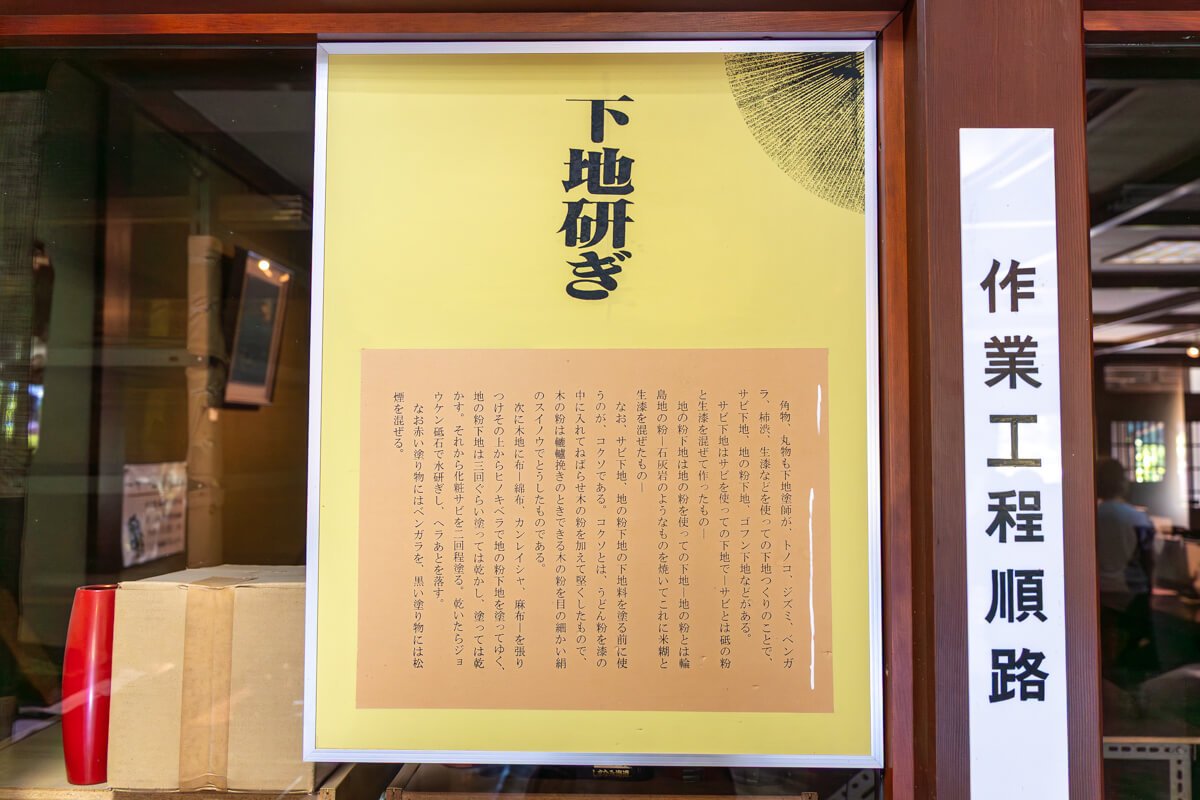 下地研ぎ
角物、丸物も下地塗師が、トノコ、ジズミ、ベンガ
ラ、柿渋、生漆などを使っての下地つくりのことで、
サビ下地、地の粉下地、ゴフン下地などがある。
サビ下地はサビを使っての下地で―サビとは砥の粉
と生漆を混ぜて作ったもの―
地の粉下地は地の粉を使っての下地―地の粉とは輪
島地の粉―石灰岩のようなものを焼いてこれに米糊と
生漆を混ぜたもの―
なお、サビ下地、地の粉下地の下地料を塗る前に使
うのが、コクソである。コクソとは、うどん粉を漆の
中に入れてねばらせ木の粉を加えて堅くしたもので、
木の粉は轆轤挽きのときできる木の粉を目の細かい絹
のスイノウでとうしたものである。
次に木地に布―綿布、カンレイシャ、麻布―を張り
つけその上からヒノキベラで地の粉下地を塗ってゆく、
地の粉下地は三回ぐらい塗っては乾かし、塗っては乾
かす。それから化粧サビを二回程塗る。乾いたらジョ
ウケン砥石で水研ぎし、ヘラあとを落す。
なお赤い塗り物にはベンガラを、黒い塗り物には松
煙を混ぜる。
作業工程順路